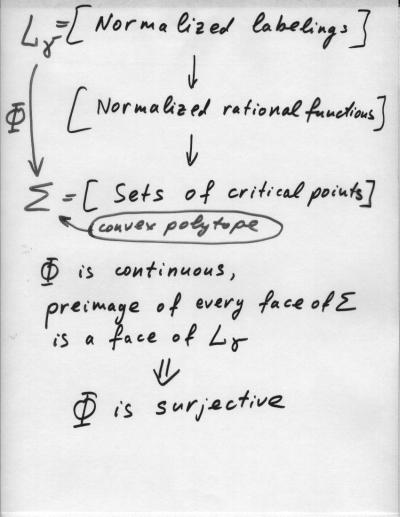 L_γ = [Normalized labelings]
↓
Φ [Normalized rational functions]
↓
Σ = [Sets of critical points]
convex polytope
Φ is continuous,
preimage of every face of Σ
is a face of L_γ
⇓
Φ is surjective